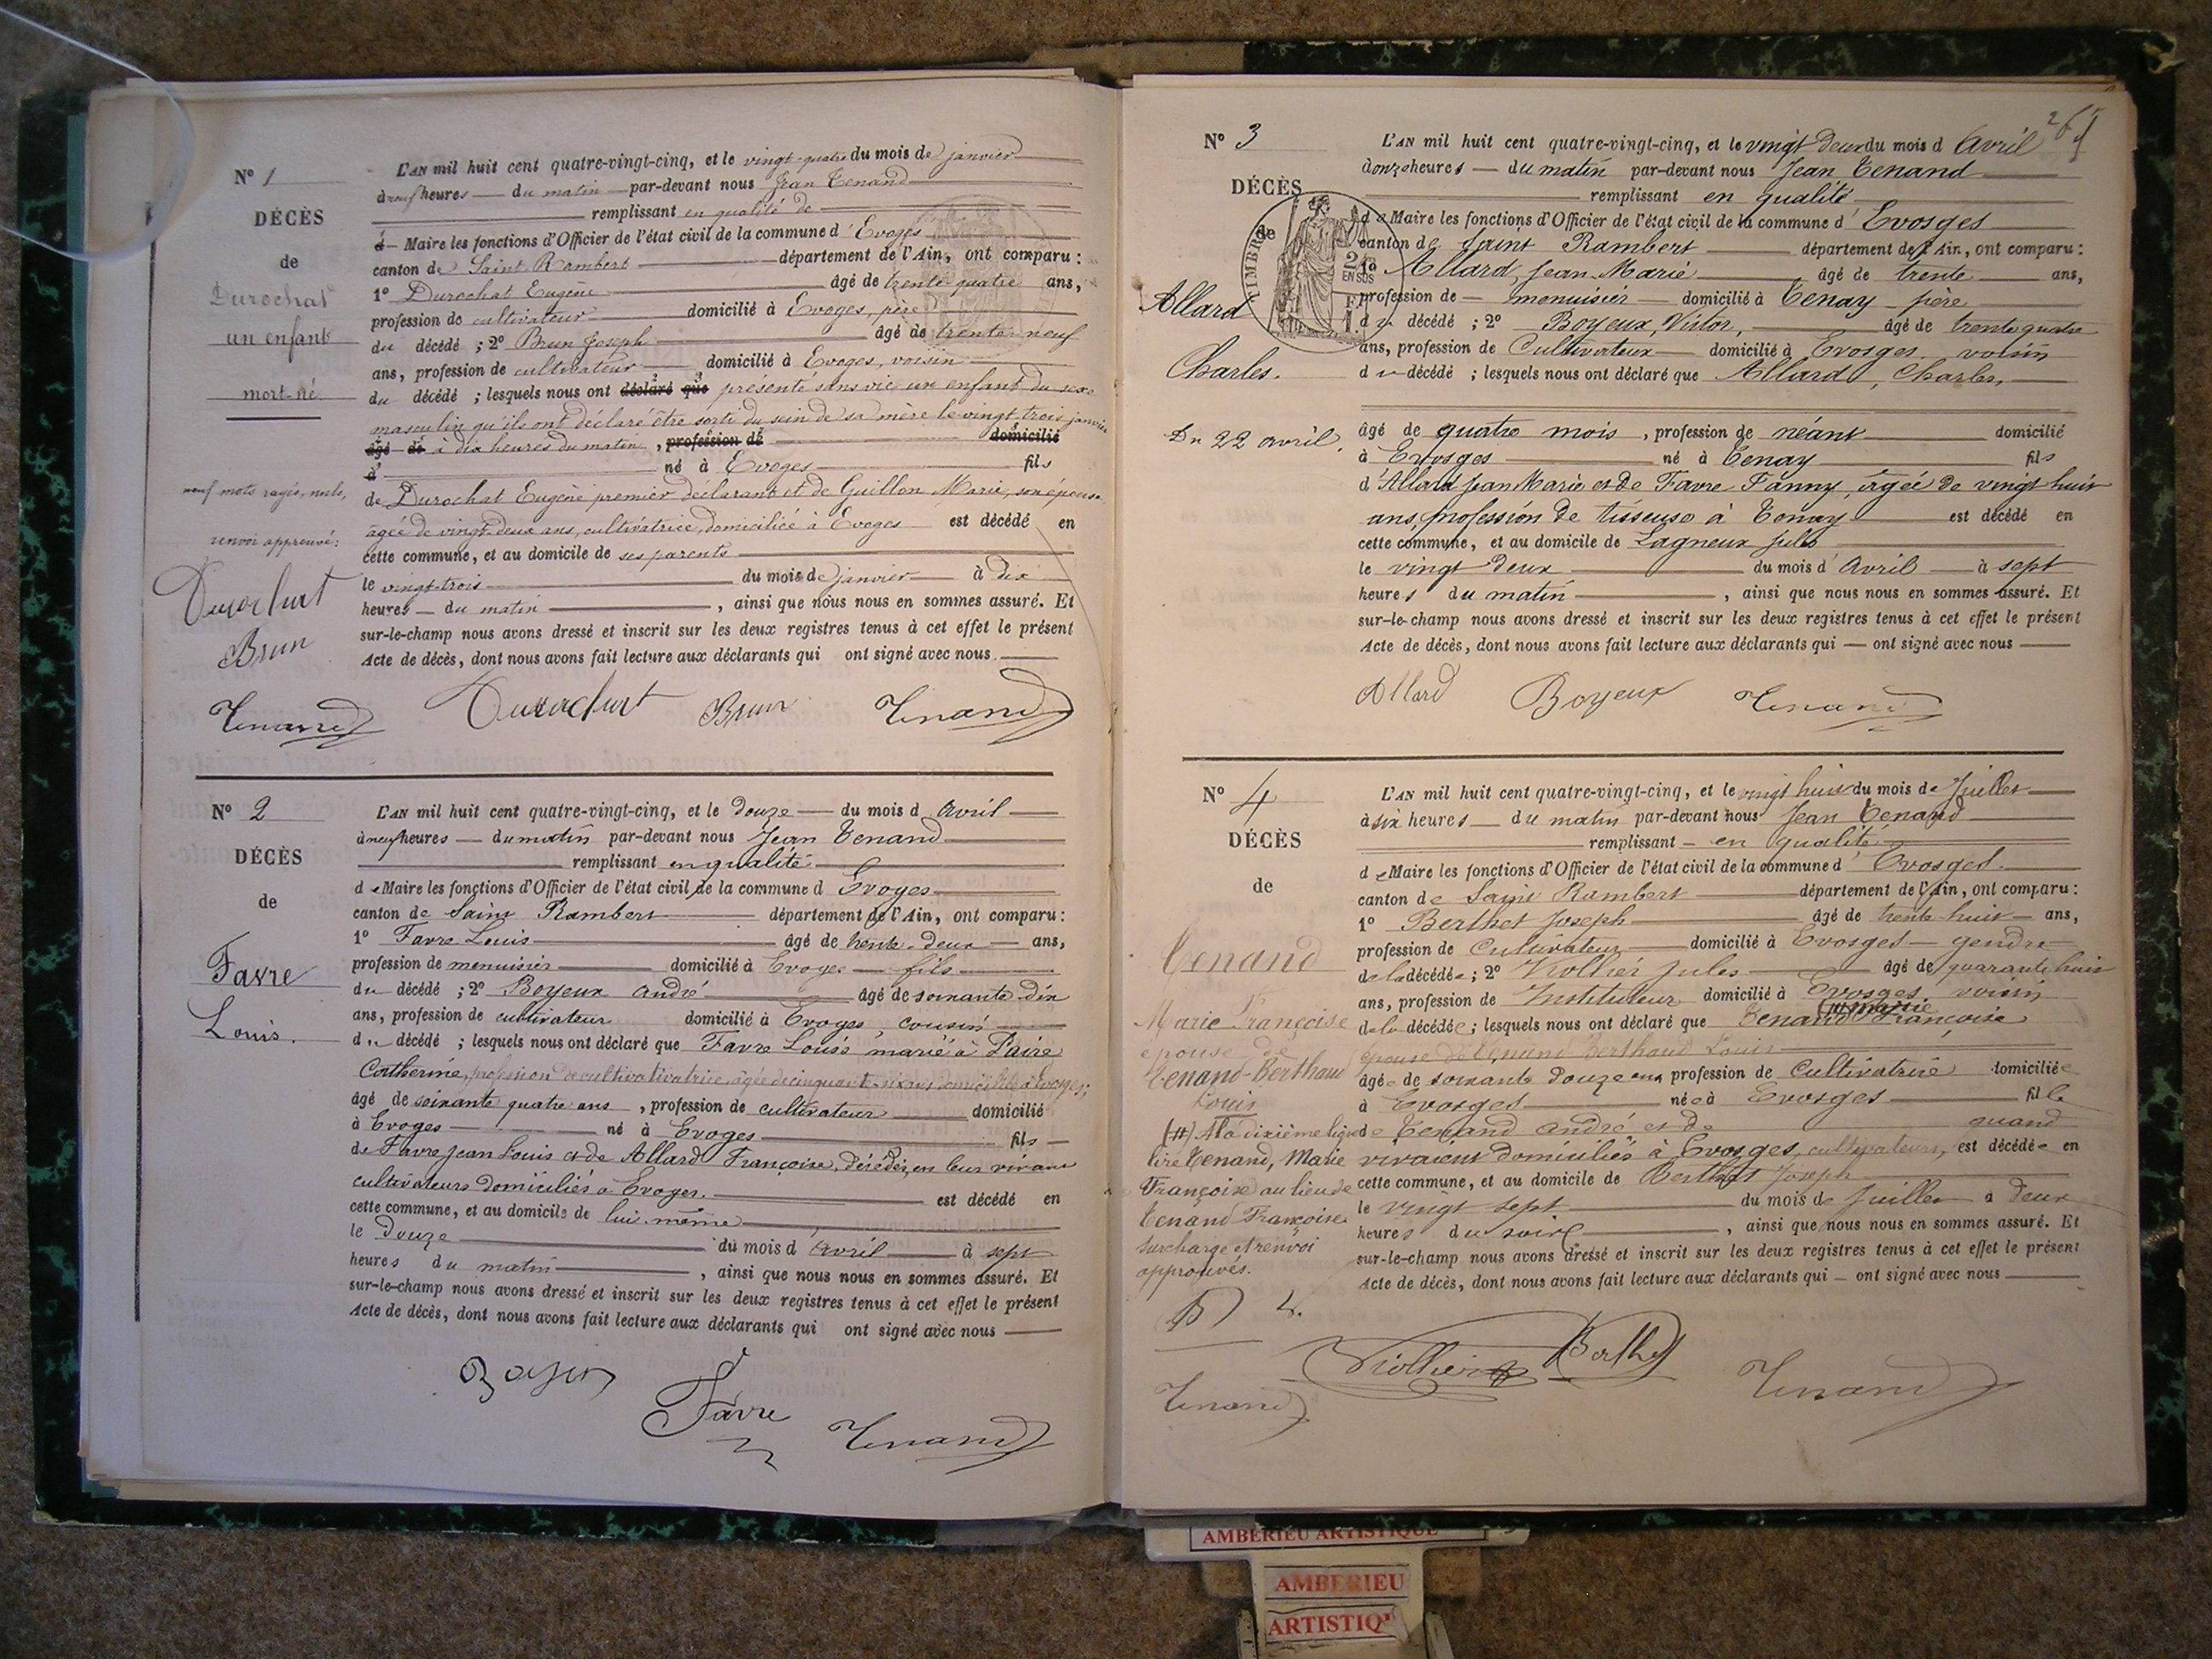 N° 1
DÉCÈS
de
Durochat
un enfant
mort-né
L'AN mil huit cent quatre-vingt-cinq, et le vingt-quatre du mois de janvier
à neuf heures du matin par-devant nous Jean Tenand
remplissant en qualité de
d Maire les fonctions d'Officier de l'état civil de la commune d'Evoges
canton de Saint Rambert département de l'Ain, ont comparu :
1° Durochat Eugène âgé de trente quatre ans,
profession de cultivateur domicilié à Evoges, père
du décédé ; 2° Brun Joseph âgé de trente-neuf
ans, profession de cultivateur domicilié à Evoges, voisin
du décédé ; lesquels nous ont déclaré que présenté sans vie un enfant du sexe
masculin qu'ils ont déclaré être sorti du sein de sa mère le vingt-trois janvier
âgé de à dix heures du matin, profession de domicilié
à né à Evoges fils
de Durochat Eugène premier déclarant et de Guillon Marie, son épouse
âgée de vingt-deux ans, cultivatrice, domiciliée à Evoges est décédé en
cette commune, et au domicile de ses parents
le vingt-trois du mois de janvier à dix
heures du matin , ainsi que nous nous en sommes assuré. Et
sur-le-champ nous avons dressé et inscrit sur les deux registres tenus à cet effet le présent
Acte de décès, dont nous avons fait lecture aux déclarants qui ont signé avec nous.
neuf mots rayés, nuls,
renvoi approuvé :
Durochat
Brun
Tenand Durochat Brun Tenand
N° 2
DÉCÈS
de
Favre
Louis.
L'AN mil huit cent quatre-vingt-cinq, et le douze du mois d Avril
à neuf heures du matin par-devant nous Jean Tenand
remplissant en qualité
de Maire les fonctions d'Officier de l'état civil de la commune d Evoges
canton de Saint Rambert département de l'Ain, ont comparu :
1° Favre Louis âgé de trente-deux ans,
profession de menuisier domicilié à Evoges fils
du décédé ; 2° Boyeux André âgé de soixante-dix
ans, profession de cultivateur domicilié à Evoges, cousin
du décédé ; lesquels nous ont déclaré que Favre Louis marié à Paire
Catherine, profession de cultivativatrice, âgée de cinquante-six ans domiciliée à Evoges;
âgé de soixante quatre ans , profession de cultivateur domicilié
à Evoges né à Evoges fils
de Favre Jean Louis et de Allard Françoise, décédés, en leur vivant
cultivateurs domiciliés à Evoges. est décédé en
cette commune, et au domicile de lui-même
le douze du mois d'Avril à sept
heures du matin , ainsi que nous nous en sommes assuré. Et
sur-le-champ nous avons dressé et inscrit sur les deux registres tenus à cet effet le présent
Acte de décès, dont nous avons fait lecture aux déclarants qui ont signé avec nous
Favre Tenand
265
N° 3
DÉCÈS
de
TIMBRE
2/10
EN SUS
Allard
Charles.
Du 22 avril.
L'AN mil huit cent quatre-vingt-cinq, et le vingt deux du mois d Avril
à onze heures du matin par-devant nous Jean Tenand
remplissant en qualité
de Maire les fonctions d'Officier de l'état civil de la commune d'Evosges
canton de Saint Rambert département de l'Ain, ont comparu :
1° Allard, Jean-Marie âgé de trente ans,
profession de menuisier domicilié à Tenay père
du décédé ; 2° Boyeux Victor, âgé de trente quatre
ans, profession de Cultivateur domicilié à Evosges, voisin
du décédé ; lesquels nous ont déclaré que Allard, Charles,
âgé de quatre mois , profession de néant domicilié
à Evosges né à Tenay fils
d'Allard Jean Marie et de Favre Fanny, âgée de vingt huit
ans, profession de tisseuse à Tenay est décédé en
cette commune, et au domicile de Lagneux Jules
le vingt deux du mois d'Avril à sept
heures du matin , ainsi que nous nous en sommes assuré. Et
sur-le-champ nous avons dressé et inscrit sur les deux registres tenus à cet effet le présent
Acte de décès, dont nous avons fait lecture aux déclarants qui ont signé avec nous
Allard Boyeux Tenand
N° 4
DÉCÈS
de
Tenand
Marie Françoise
épouse de
Tenand-Berthaud
Louis
L'AN mil huit cent quatre-vingt-cinq, et le vingt huit du mois de Juillet
à six heures du matin par-devant nous Jean Tenand
remplissant en qualité
de Maire les fonctions d'Officier de l'état civil de la commune d'Evosges.
canton de Saint Rambert département de l'Ain, ont comparu :
1° Berthet Joseph âgé de trente huit ans,
profession de Cultivateur domicilié à Evosges gendre
de la décédée ; 2° Viollier Jules âgé de quarante huit
ans, profession de Instituteur domicilié à Evosges voisin
de la décédée ; lesquels nous ont déclaré que Tenand (#) Marie Françoise
épouse de Tenand Berthaud Louis
âgée de soixante douze ans profession de Cultivatrice domiciliée
à Evosges née à Evosges fille
de Tenand André et de quand
vivaient domiciliés à Evosges, cultivateurs, est décédée en
cette commune, et au domicile de Berthet Joseph
le vingt sept du mois de Juillet à deux
heures du soir , ainsi que nous nous en sommes assuré. Et
sur-le-champ nous avons dressé et inscrit sur les deux registres tenus à cet effet le présent
Acte de décès, dont nous avons fait lecture aux déclarants qui ont signé avec nous
(#) A la dixième ligne
lire Tenand, Marie
Françoise au lieu de
Tenand Françoise
surcharge et renvoi
approuvés.
Viollier Berthet Tenand
Tenand
AMBERIEU ARTISTIQUE
AMBERIEU
ARTISTIQ